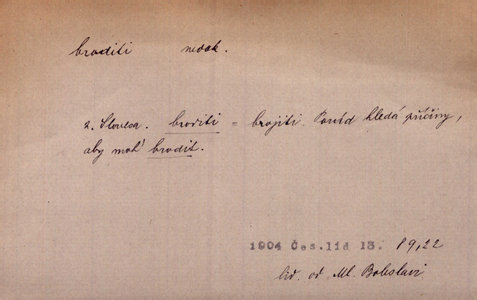 broditi nedok.
z. Slovesa. broditi = brojiti. Pořád hledá příčiny,
aby moh' brodit.
1904 Čes.lid 13. 89,22
od Ml. Boleslavi